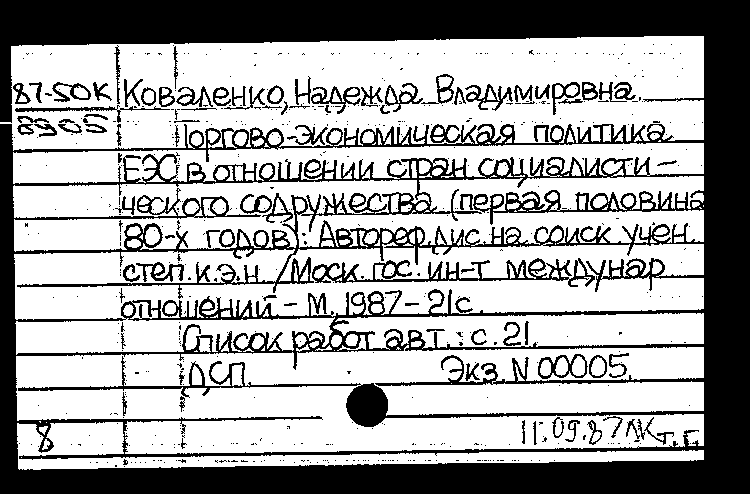 87-50К Коваленко, Надежда Владимировна.
8905
Торгово-экономическая политика
ЕЭС в отношении стран социалисти-
ческого содружества (первая половина
80-х годов): Автореф. дис. на соиск. учен.
степ. к.э.н. /Моск. гос. ин-т междунар.
отношений. - М., 1987 - 21с.
Список работ авт.: с. 21.
ДСП. Экз. N 00005.
8 11.09.87